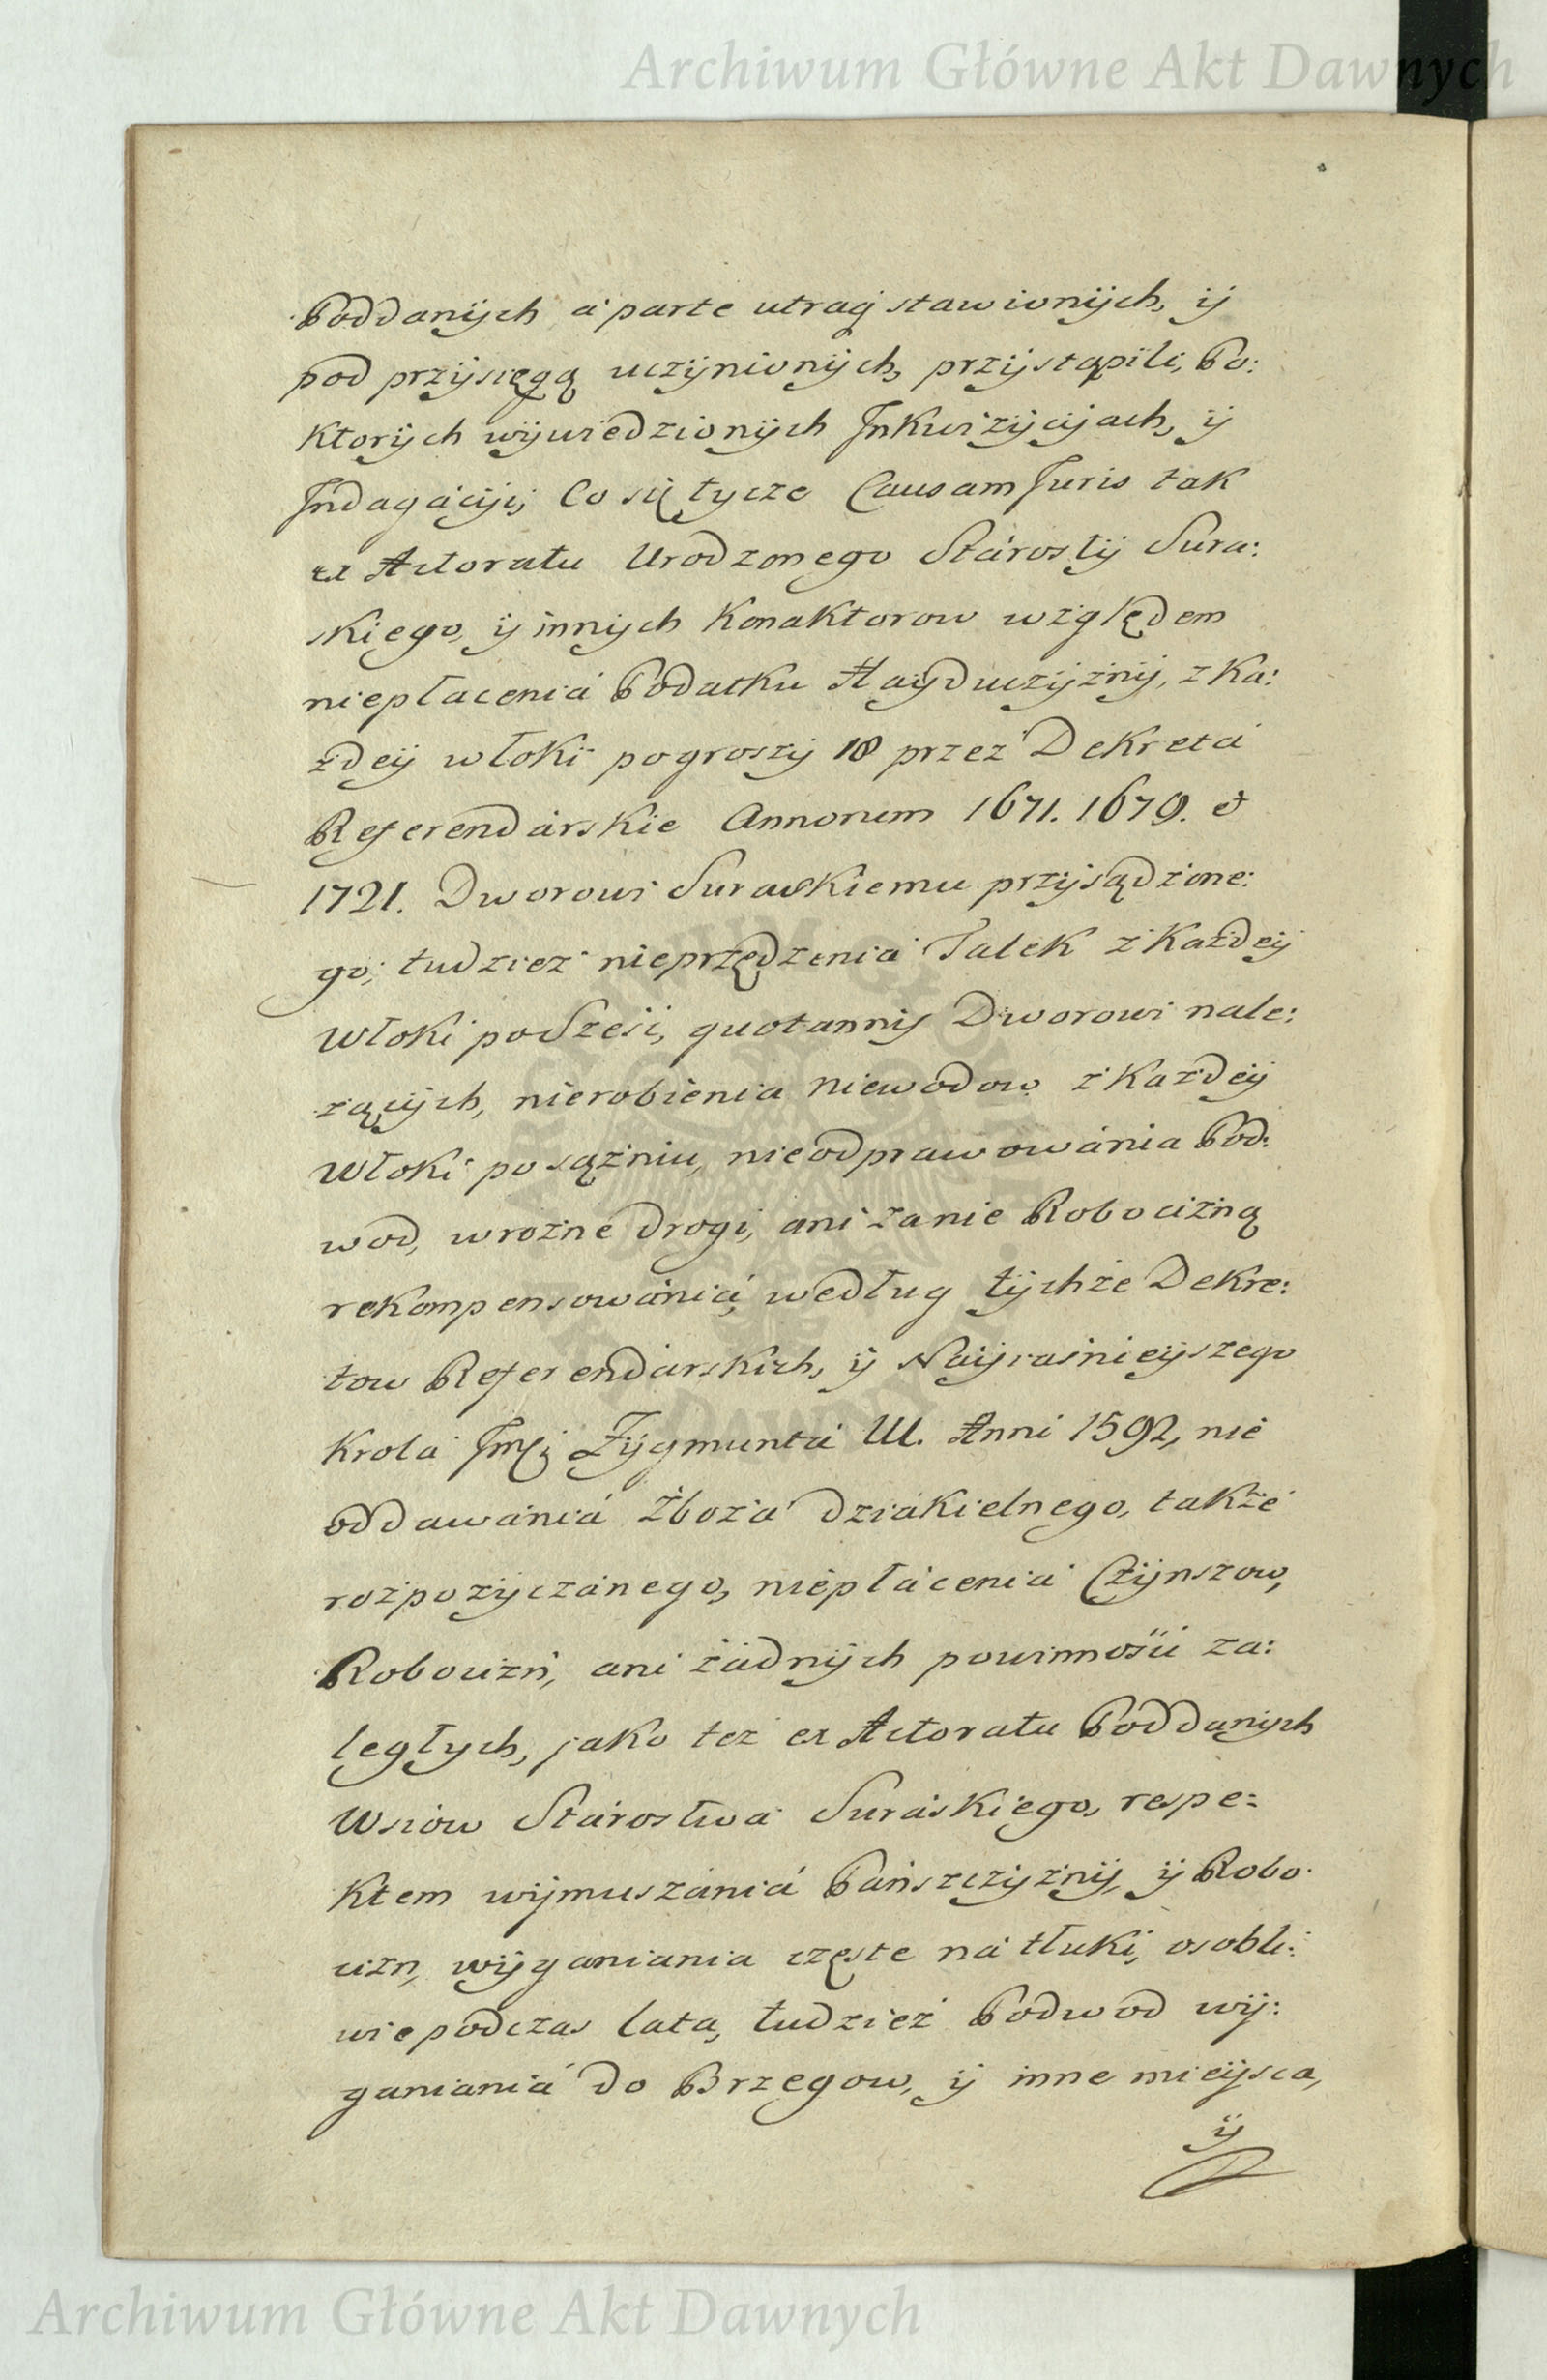 Archiwum Główne Akt Dawnych
Poddanÿch á parte utraq stawionÿch, ÿ
pod przÿsięgą uczÿnionÿch, przÿstąpili, Po:
ktorÿch wÿwiedzionÿch Inkwizÿcÿjach, ÿ
Indagácÿi, Co się tycze Causam Juris tak
ex Actoratu Urodzonego Stárostÿ Sura:
skiego, ÿ innÿch Konaktorow względem
niepłaceniá Podatku Haÿduczÿznÿ, z Ka:
żdeÿ włoki po groszÿ 18 przez Dekretá
Referendárskie Annorum 1671. 1679. et
1721. Dworowi Suraskiemu przÿsądzone:
go, tudziez nieprzędzenia Talek z Każdeÿ
Włoki po Sześi, quotannis Dworowi nale:
zącÿch, nierobienia niewodow z Każdeÿ
Włoki po sążniu, nieodprawowánia Pod:
wod, w rożne drogi, ani za nie Robocizną
rekompensowániá, według tÿchże Dekre:
tow Referendárskich, ÿ Naÿiaśnieÿszego
Krola Jmsci Zÿgmuntá III. Anni 1592, nie
oddawániá Zboza dziakielnego, także
rozpozÿczánego, niepłácenia Czÿnszow,
Robocizn, ani żádnÿch powinnośći za:
ległych, jako tez ex Actoratu Poddanÿch
Wsiow Stárostwa Suráskiego, respe:
ktem wÿmuszániá Pańszczÿznÿ, ÿ Robo:
cizn, wÿganiania częste ná tłuki, osobli:
wie podczas lata, tudzież Podwod wÿ:
ganianiá do Brzegow, ÿ inne mieÿsca,
ÿ
Archiwum Główne Akt Dawnych